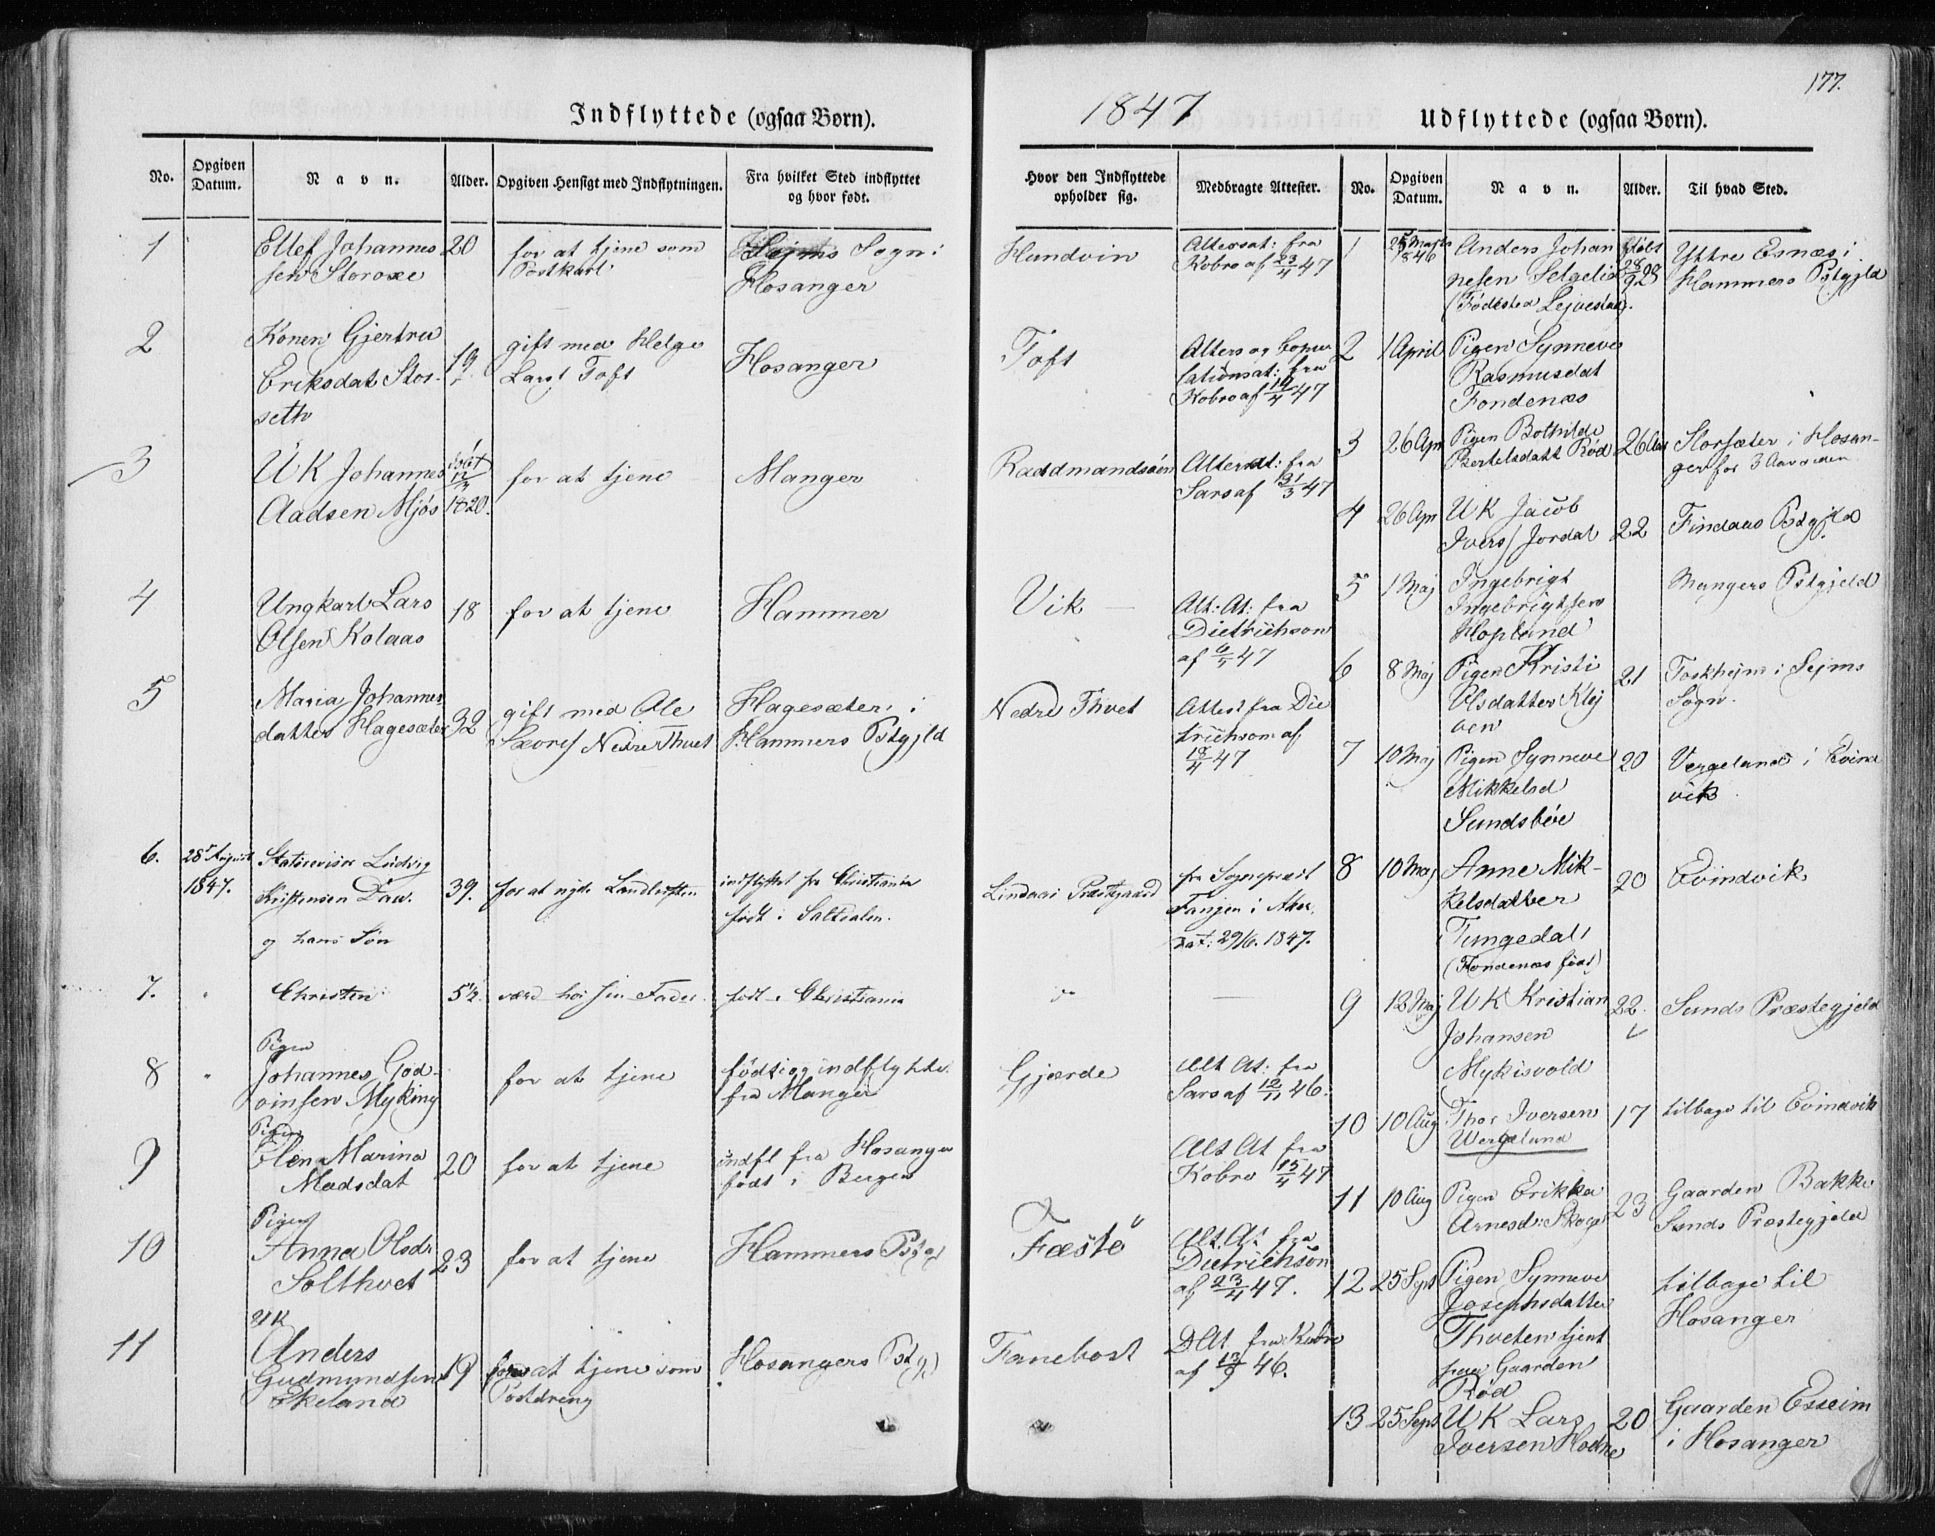 177.
Indflyttede (ogsaa Børn).
1847
Udflyttede (ogsaa Børn).
No. Opgiven Datum. Navn. Alder. Opgiven Hensigt med Indflytningen. Fra hvilket Sted indflyttet og hvor født. Hvor den Indflyttede opholder sig. Medbragte Attester.
1 Ellef Johannes 20 for at tjene som Sejms Sogn i Hundvin Altersat: fra
sen Storoxe Postkarl Hosanger Kobro af 23/4 47
2 Konen Gjertru 19 gift med Helge Hosanger Toft Alters og Copu
Eriksdat Stor- Lars/ Toft lationsat: fra
seth Kobro af 19/4 47
3 UK Johannes født 12/3 for at tjene Manger Raddmandsøen Altersat: fra
Aadsen Mjøs 1820. Sars af 31/3 47
4 Ungkarl Lars 18 for at tjene Hammer Vik Alt: At: fra
Olsen Kolaas Dietrichson
af 6/5 47
5 Maria Johannes 32 gift med Ole Hagesæter i Nedre Thvet Attest fra Die
datter Hagesæter Sævers/ Nedre Thvet Hammers Pstgjld trichson af
47
6. 28de August Ludvig 39. for at nyde Landluften indflyttet fra Christiania Lindaas Præstegaard fra Sognepræst
1847. Kristensen Daa. født i Saltdalen. Tanjen i Aker,
og hans Søn Dat: 29/6. 1847.
7. " Christen 5½ være hos sin Fader. født i Christiania —
8 " Pigen
Johannes God- for at tjene født i og indflytte. Gjærde Alt At: fra
vinsen Myking fra Manger Sars af 12/11 46.
9 Pigen
Elen Marina 20 for at tjene indfl fra Hosanger Alt At fra
Madsdat født i Bergen Kobro 15/4 47
10 Pigen
Anna Olsdr 23 for at tjene Hammers Pstgj Fæstø Alt. At. fra
Solthvet Dietrichson
af 23/4 47.
11 UK
Anders 19 for at tjene som Hosangers Pstgj Fanebost D At fra Kobro
Gudmundsen Postdreng af 13/9 46.
Ekeland
No. Opgiven Datum. Navn. Alder. Til hvad Sted.
1 25 Marts Anders Johan født Yttre Esnæs i
1846 nesen Setgelid 28/9 28 Hammers Pstgjld
(Fødested Lejvestad).
2 1 April Pigen Synneve
Rasmusdat
Fondenæs
3 26 Apr Pigen Bothilde 26 Aar Storsæter i Hosan-
Bertelsdatt Rød ger for 3 Aar siden
4 26 Apr UK Jacob 22 Findaas Pstgjld
Ivers/ Jordal
5 1 Maj Ingebrigt Mangers Pstgjeld
Ingebrigtsen
Hopland
6 8 Maj Pigen Kristi 21 Toskhejm i Sejms
Olsdatter Klej Sogn.
ven
7 10 Maj Pigen Synneve 20 Vergeland i Evind
Mikkelsd vik
Sundsbøe
8 10 Maj Anne Mik- 20 Evindvik
kelsdatter
Tungedal
(Fondenæs født)
9 12 Maj UK Kristian 22. Sunds Præstegjeld
Johansen
Mykisvold
10 10 Aug Thor Iversen 17 tilbage til Evindvik
Wergeland
11 10 Aug Pigen Erikka 23 Gaarden Bakke
Arnesd: Skoge Sunds Præstegjeld
12 25 Sept Pigen Synneve tilbage til
Josephsdatter Hosanger
Thveten tjent
paa Gaarden
Rød
13 25 Sept UK Lars 20 Gaarden Esseim
Iversen Hodne i Hosanger